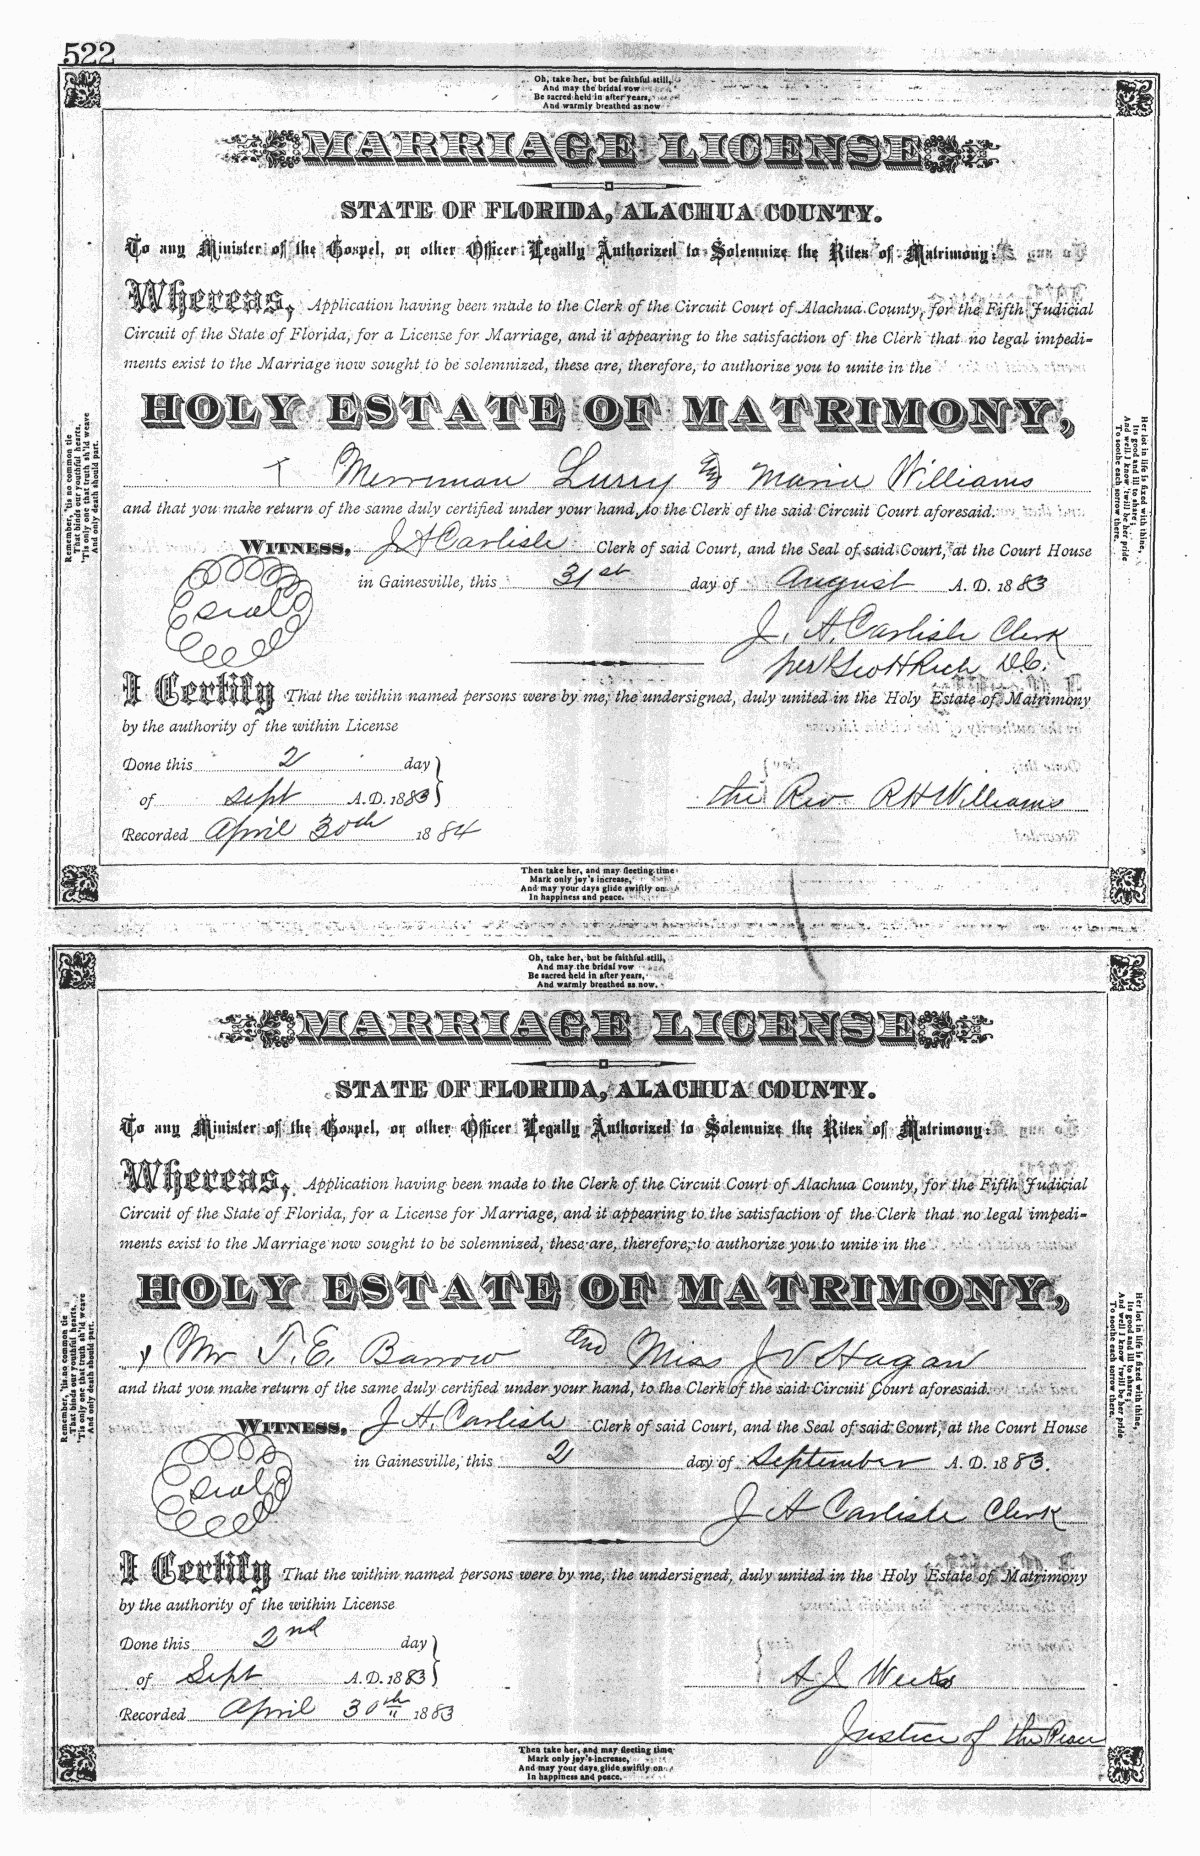 522
Oh, take her, but be faithful still,
And may the bridal vow
Be sacred held in after years,
And warmly breathed as now
MARRIAGE LICENSE
STATE OF FLORIDA, ALACHUA COUNTY.
To any Minister of the Gospel, or other Officer Legally Authorized to Solemnize the Rites of Matrimony:
Whereas, Application having been made to the Clerk of the Circuit Court of Alachua County, for the Fifth Judicial
Circuit of the State of Florida, for a License for Marriage, and it appearing to the satisfaction of the Clerk that no legal impedi-
ments exist to the Marriage now sought to be solemnized, these are, therefore, to authorize you to unite in the
HOLY ESTATE OF MATRIMONY,
Merriman Lurry and Maria Williams
and that you make return of the same duly certified under your hand, to the Clerk of the said Circuit Court aforesaid.
WITNESS, J A Carlisle Clerk of said Court, and the Seal of said Court, at the Court House
in Gainesville, this 31st day of August A. D. 1883
seal
J. A. Carlisle Clerk
per Geo H Rich D.C.
I Certify That the within named persons were by me, the undersigned, duly united in the Holy Estate of Matrimony
by the authority of the within License
Done this 2 day
of Sept A. D. 1883
the Rev R H Williams
Recorded April 30th 1884
Remember, 'tis no common tie
That binds our youthful hearts,
'Tis only one that truth sh'ld weave
And only death should part.
Her lot in life is fixed with thine,
Its good and ill to share;
And well I know 'twill be her pride
To soothe each sorrow there.
Then take her, and may fleeting time
Mark only joy's increase,
And may your days glide swiftly on
In happiness and peace.
Oh, take her, but be faithful still,
And may the bridal vow
Be sacred held in after years,
And warmly breathed as now.
MARRIAGE LICENSE
STATE OF FLORIDA, ALACHUA COUNTY.
To any Minister of the Gospel, or other Officer Legally Authorized to Solemnize the Rites of Matrimony:
Whereas, Application having been made to the Clerk of the Circuit Court of Alachua County, for the Fifth Judicial
Circuit of the State of Florida, for a License for Marriage, and it appearing to the satisfaction of the Clerk that no legal impedi-
ments exist to the Marriage now sought to be solemnized, these are, therefore, to authorize you to unite in the
HOLY ESTATE OF MATRIMONY,
Mr T. E. Barrow and Miss J V Hagan
and that you make return of the same duly certified under your hand, to the Clerk of the said Circuit Court aforesaid.
WITNESS, J. A. Carlisle Clerk of said Court, and the Seal of said Court, at the Court House
in Gainesville, this 2 day of September A. D. 1883.
seal
J A Carlisle Clerk
I Certify That the within named persons were by me, the undersigned, duly united in the Holy Estate of Matrimony
by the authority of the within License
Done this 2nd day
of Sept A. D. 1883
A J Weeks
Recorded April 30th 1883
Justice of the Peace
Remember, 'tis no common tie
That binds our youthful hearts,
'Tis only one that truth sh'ld weave
And only death should part.
Her lot in life is fixed with thine,
Its good and ill to share;
And well I know 'twill be her pride
To soothe each sorrow there.
Then take her, and may fleeting time
Mark only joy's increase,
And may your days glide swiftly on
In happiness and peace.